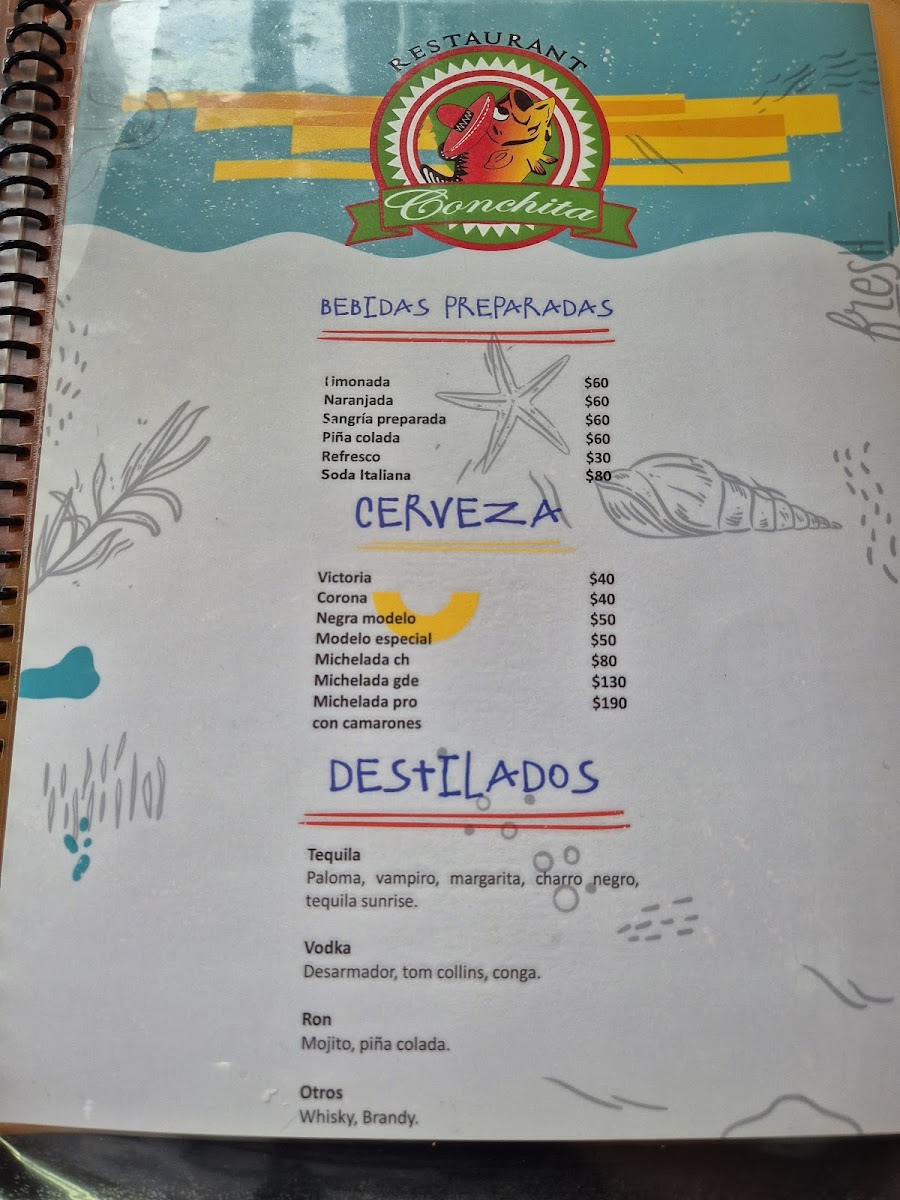 RESTAURANT
Conchita
fresh
BEBIDAS PREPARADAS
Limonada $60
Naranjada $60
Sangría preparada $60
Piña colada $60
Refresco $30
Soda Italiana $80
CERVEZA
Victoria $40
Corona $40
Negra modelo $50
Modelo especial $50
Michelada ch $80
Michelada gde $130
Michelada pro $190
con camarones
DESTILADOS
Tequila
Paloma, vampiro, margarita, charro negro,
tequila sunrise.
Vodka
Desarmador, tom collins, conga.
Ron
Mojito, piña colada.
Otros
Whisky, Brandy.